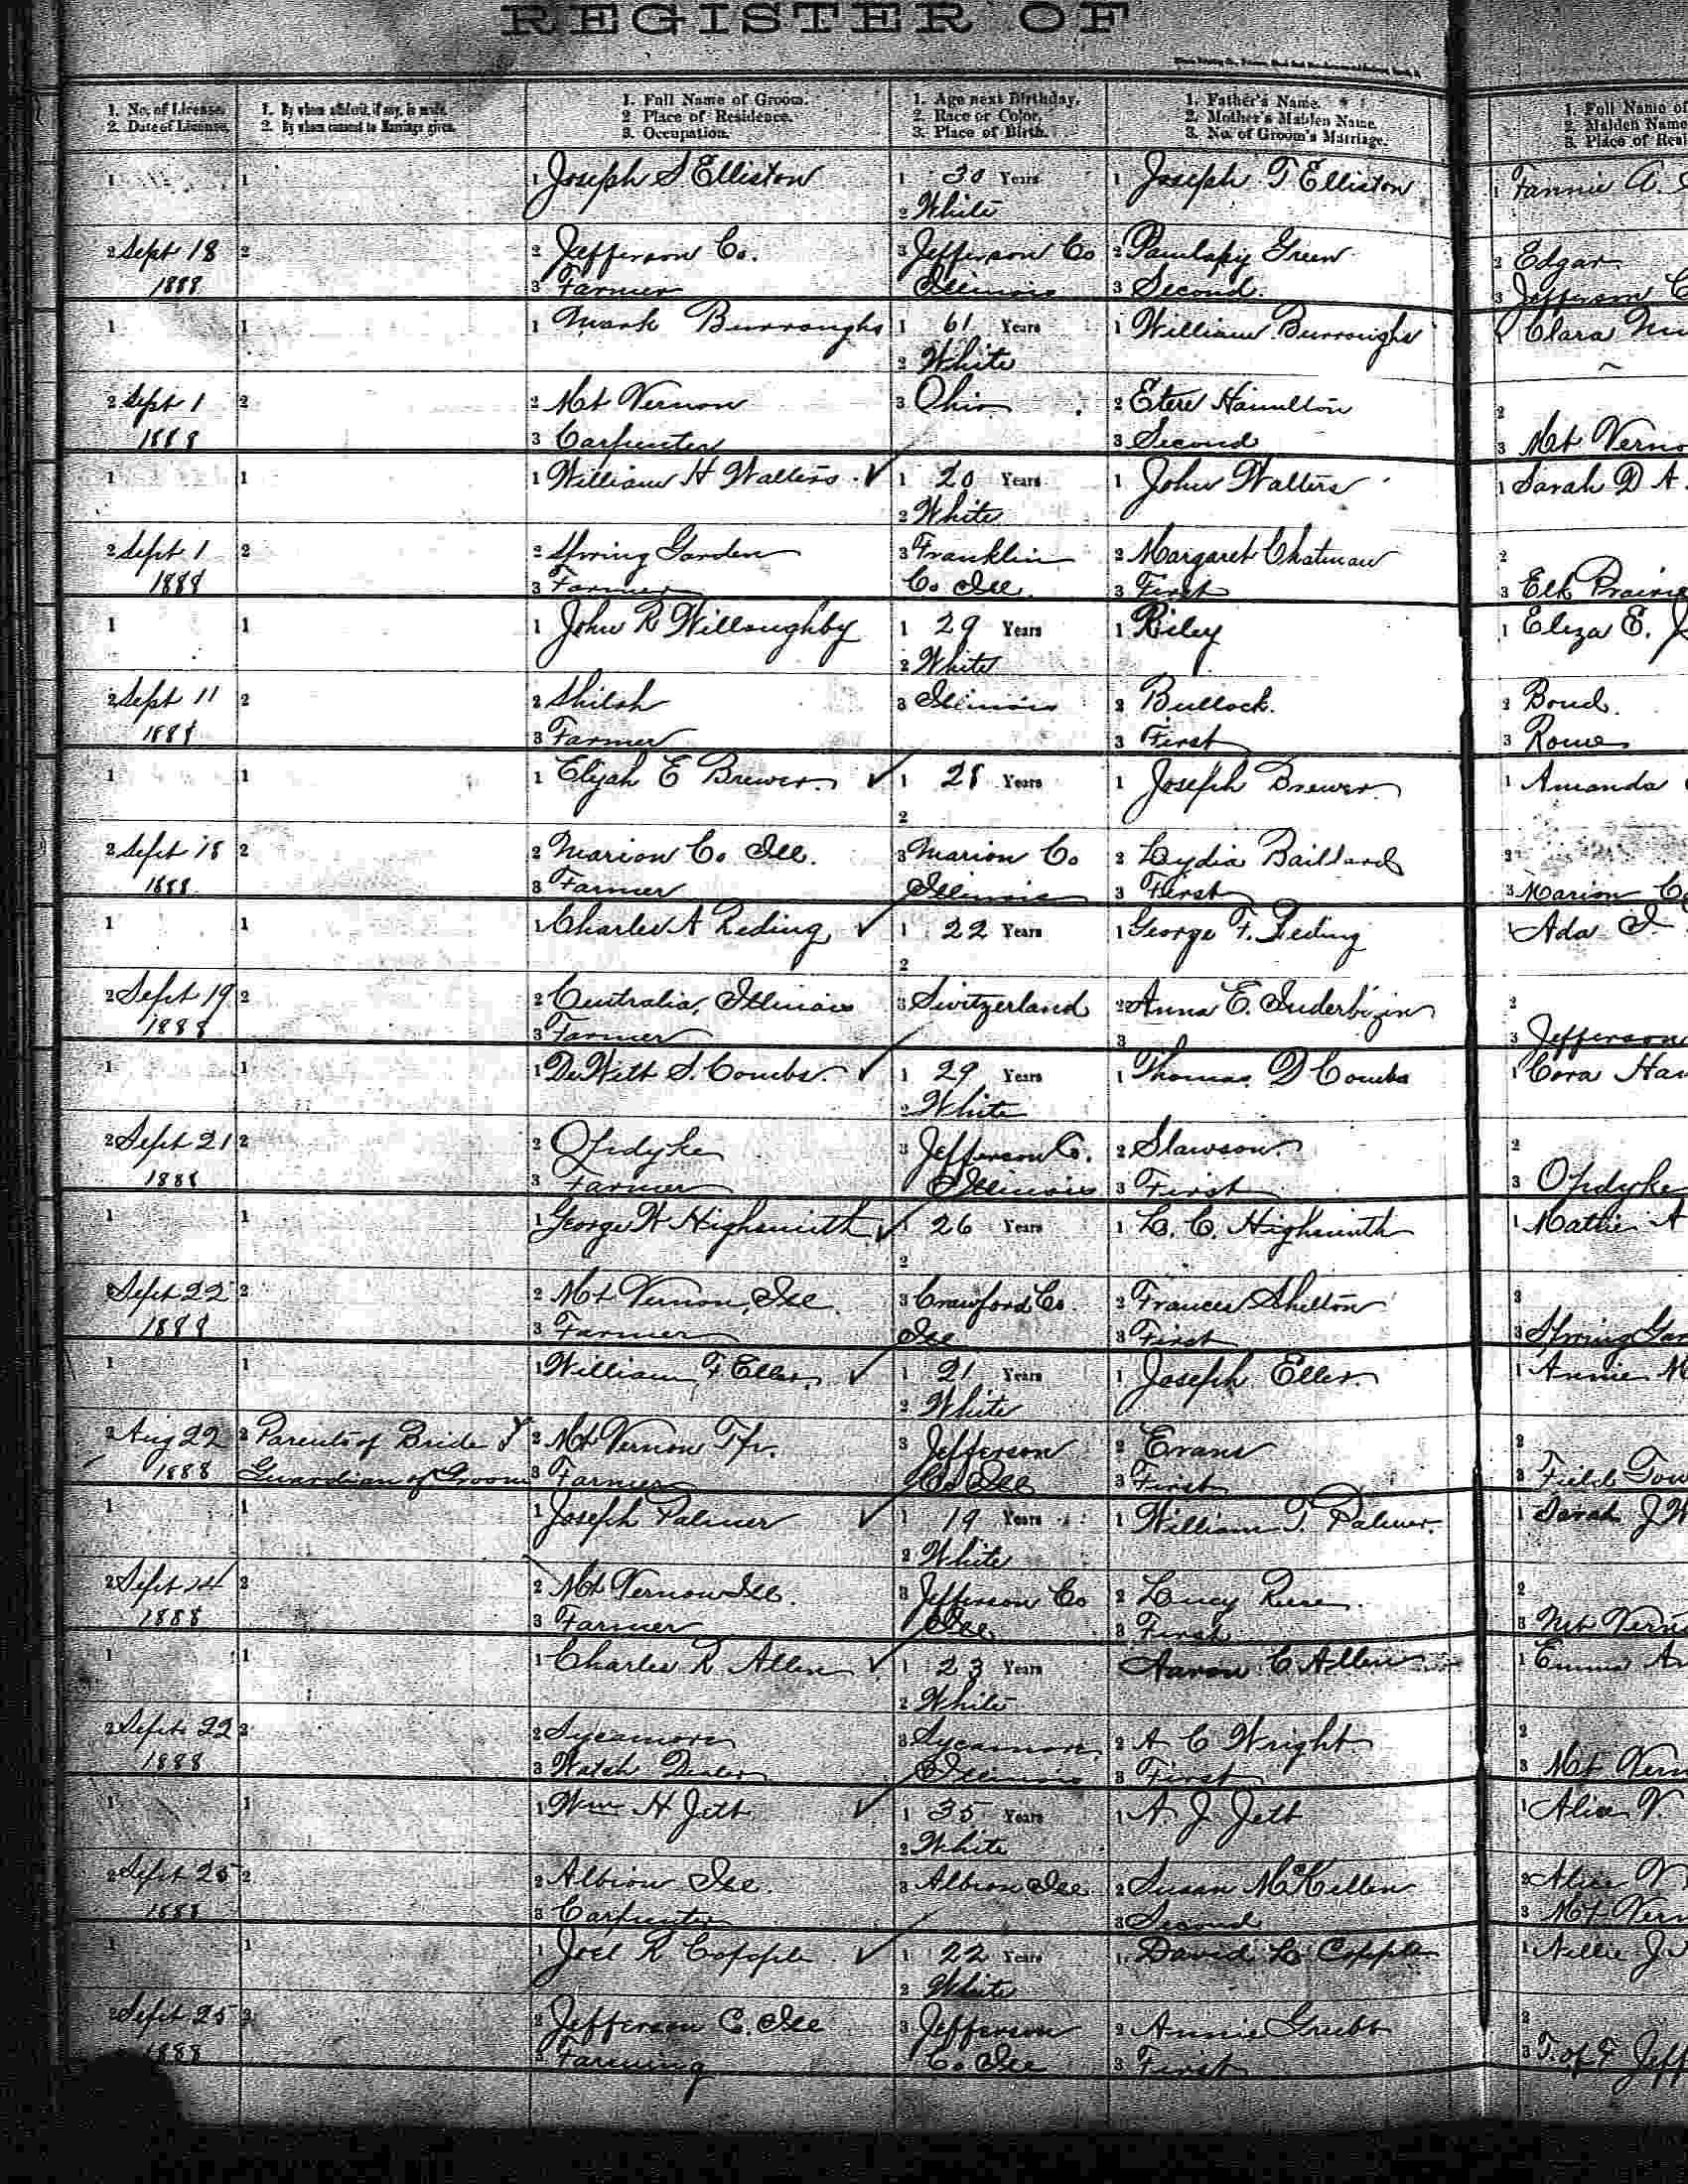 REGISTER OF
1. No. of License. 1. By whom affidavit, if any, is made. 1. Full Name of Groom. 1. Age next Birthday. 1. Father's Name. 1. Full Name of
2. Date of License. 2. By whom consent to Marriage given. 2. Place of Residence. 2. Race or Color. 2. Mother's Maiden Name. 2. Maiden Name
3. Occupation. 3. Place of Birth. 3. No. of Groom's Marriage. 3. Place of Resi
1 1 1 Joseph S Elliston 1 30 Years 1 Joseph T Elliston 1 Fannie A
2 White
2 Sept 18 2 2 Jefferson Co. 3 Jefferson Co 2 Green 2 Edgar
1888 3 Farmer Illinois 3 Second. 3 Jefferson C
1 1 1 Mark Burroughs 1 61 Years 1 William Burroughs 1 Clara
2 White
2 Sept 1 2 2 Mt Vernon 3 Ohio 2 Hamilton 2
1888 3 Carpenter 3 Second 3 Mt Verno
1 1 1 William H Walters 1 20 Years 1 John Walters 1 Sarah D A
2 White
2 Sept 1 2 2 Spring Garden 3 Franklin 2 Margaret Chatman 2
1888 3 Farmer Co Ill. 3 First 3 Elk Prairie
1 1 1 John R Willoughby 1 29 Years 1 Riley 1 Eliza E. J
2 White
2 Sept 11 2 2 Shiloh 3 Illinois 2 Bullock. 2 Bond.
1888 3 Farmer 3 First 3 Rome
1 1 1 Elijah E Brewer. 1 28 Years 1 Joseph Brewer. 1 Amanda
2
2 Sept 18 2 2 Marion Co Ill. 3 Marion Co 2 Lydia 2
1888 3 Farmer Illinois 3 First 3 Marion Co
1 1 1 Charles A Reding 1 22 Years 1 George F. Reding 1 Ada
2
2 Sept 19 2 2 Centralia, Illinois 3 Switzerland 2 Anna E. Inderbizin 2
1888 3 Farmer 3 3 Jefferson
1 1 1 DeWitt S. Combs. 1 29 Years 1 Thomas D Combs 1 Cora Haw
2 White
2 Sept 21 2 2 Opdyke 3 Jefferson Co. 2 Slawson. 2
1888 3 Farmer Illinois 3 First 3 Opdyke
1 1 1 George W Highsmith 1 26 Years 1 L. C. Highsmith 1 Mattie A
2
2 Sept 22 2 2 Mt Vernon, Ill. 3 Crawford Co. 2 Frances Shelton 2
1888 3 Farmer Ill 3 First 3 Spring Gar
1 1 1 William F Eller. 1 21 Years 1 Joseph Eller. 1 Annie M
2 White
2 Aug 22 2 Parents of Bride & 2 Mt Vernon Tp. 3 Jefferson 2 Evans 2
1888 Guardian of Groom 3 Farmer Co Ill 3 First 3 Field Tow
1 1 1 Joseph Palmer 1 19 Years 1 William T. Palmer. 1 Sarah J W
2 White
2 Sept 24 2 2 Mt Vernon Ill. 3 Jefferson Co 2 Lucy 2
1888 3 Farmer Ill 3 First 3 Mt Verno
1 1 1 Charles R. Allen 1 23 Years Aaron C Allen 1 Emma
2 White
2 Sept 22 2 2 Sycamore 3 Sycamore. 2 A C Wright 2
1888 3 Watch Dealer Illinois 3 First 3 Mt Vern
1 1 1 Wm H Jett 1 35 Years 1 A. J. Jett 1 Alice V.
2 White
2 Sept 25 2 2 Albion Ill. 3 Albion Ill 2 Susan McKellen 2 Alice V
1888 3 Carpenter 3 Second 3 Mt Vern
1 1 1 Joel R Copple 1 22 Years 1 David L. Copple 1 Nellie
2 White
2 Sept 25 2 2 Jefferson C. Ill 3 Jefferson 2 Annie Grubb 2
1888 3 Farming Co Ill 3 First 3 T. of F Jeff